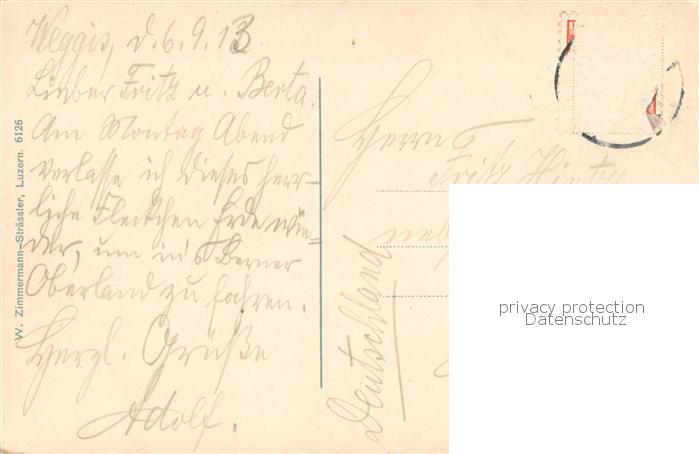 Weggis, d. 6.9.13
Lieber Fritz u. Berta.
Am Montag Abend
verlasse ich dieses herr-
liche Fleckchen Erde wie-
der, um in's Berner
Oberland zu fahren.
Herzl. Grüße
Adolf.
W. Zimmermann-Strässler, Luzern. 6126
Herrn
Fritz
Deutschland
privacy protection
Datenschutz